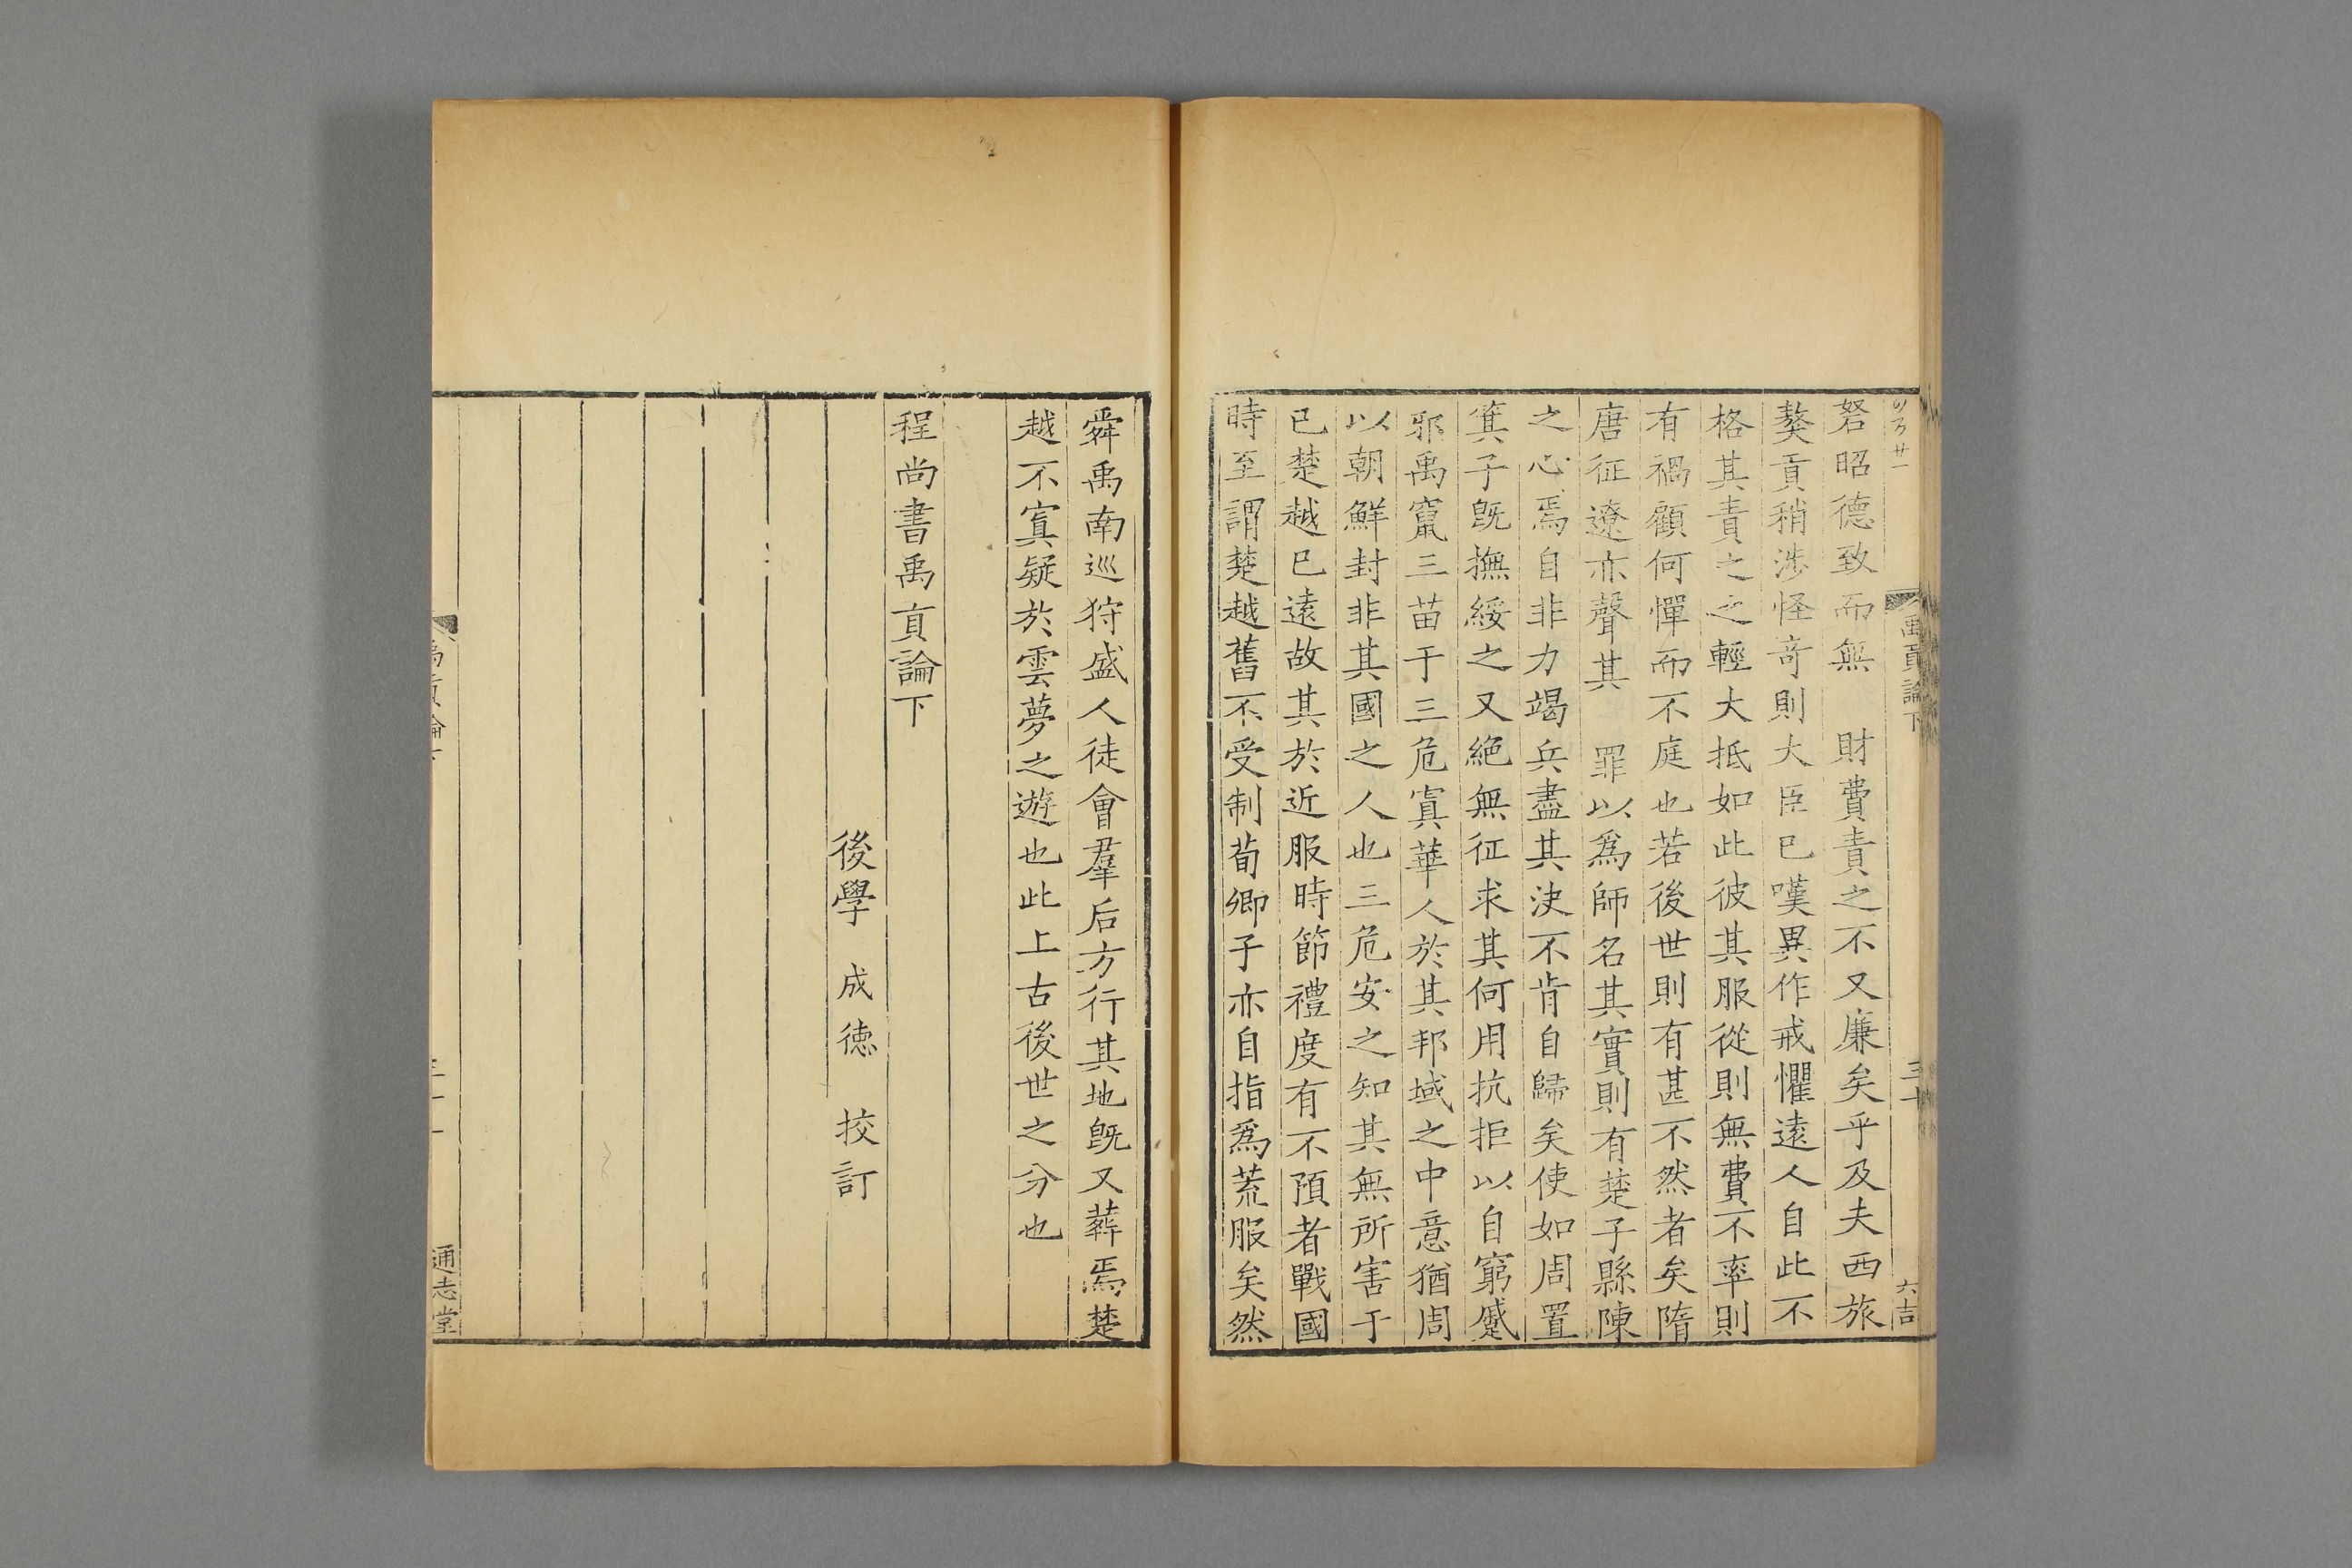 禹貢論下 三十 六吉
砮昭德致而無 財費責之不又廉矣乎及夫西旅
獒貢稍涉怪奇則大臣已嘆異作戒懼遠人自此不
格其責之之輕大抵如此彼其服從則無費不率則
有禍顧何憚而不庭也若後世則有甚不然者矣隋
唐征遼亦聲其 罪以爲師名其實則有楚子縣陳
之心焉自非力竭兵盡其決不肯自歸矣使如周置
箕子旣撫綏之又絕無征求其何用抗拒以自窮蹙
邪禹竄三苗于三危寘華人於其邦域之中意猶周
以朝鮮封非其國之人也三危安之知其無所害于
已楚越已遠故其於近服時節禮度有不預者戰國
時至謂楚越舊不受制荀卿子亦自指爲荒服矣然
舜禹南巡狩盛人徒會羣后方行其地旣又葬焉楚
越不寘疑於雲夢之遊也此上古後世之分也
程尚書禹貢論下
後學 成德 挍訂
通志堂